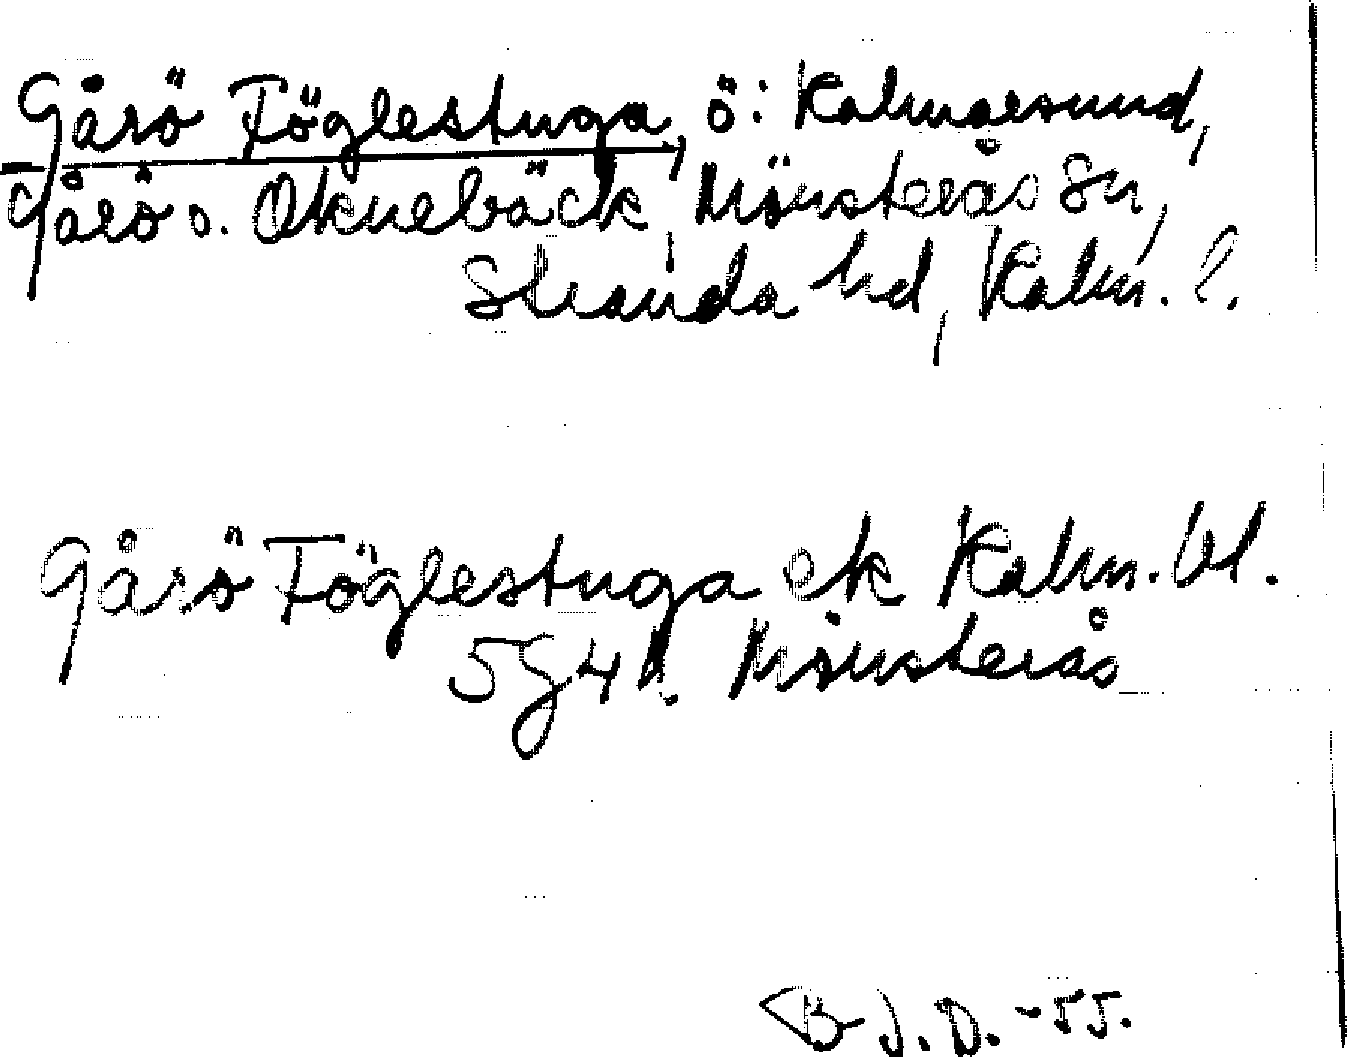 Gårö Föglestuga, ö i Kalmarsund,
Gårö o. Oknebäck, Mönsterås sn,
Stranda hd, Kalm. l.
Gårö Föglestuga ek Kalm. bl.
5G4h. Mönsterås
B J.D. -55.